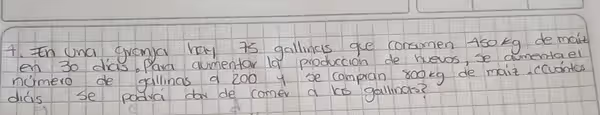 7. En una granja hay 75 gallinas que consumen 450 kg de maíz
en 30 días. Para aumentar la producción de huevos, se aumenta el
número de gallinas a 200 y se compran 800 kg de maiz. ¿Cuántos
días se podrá dar de comer a las gallinas?